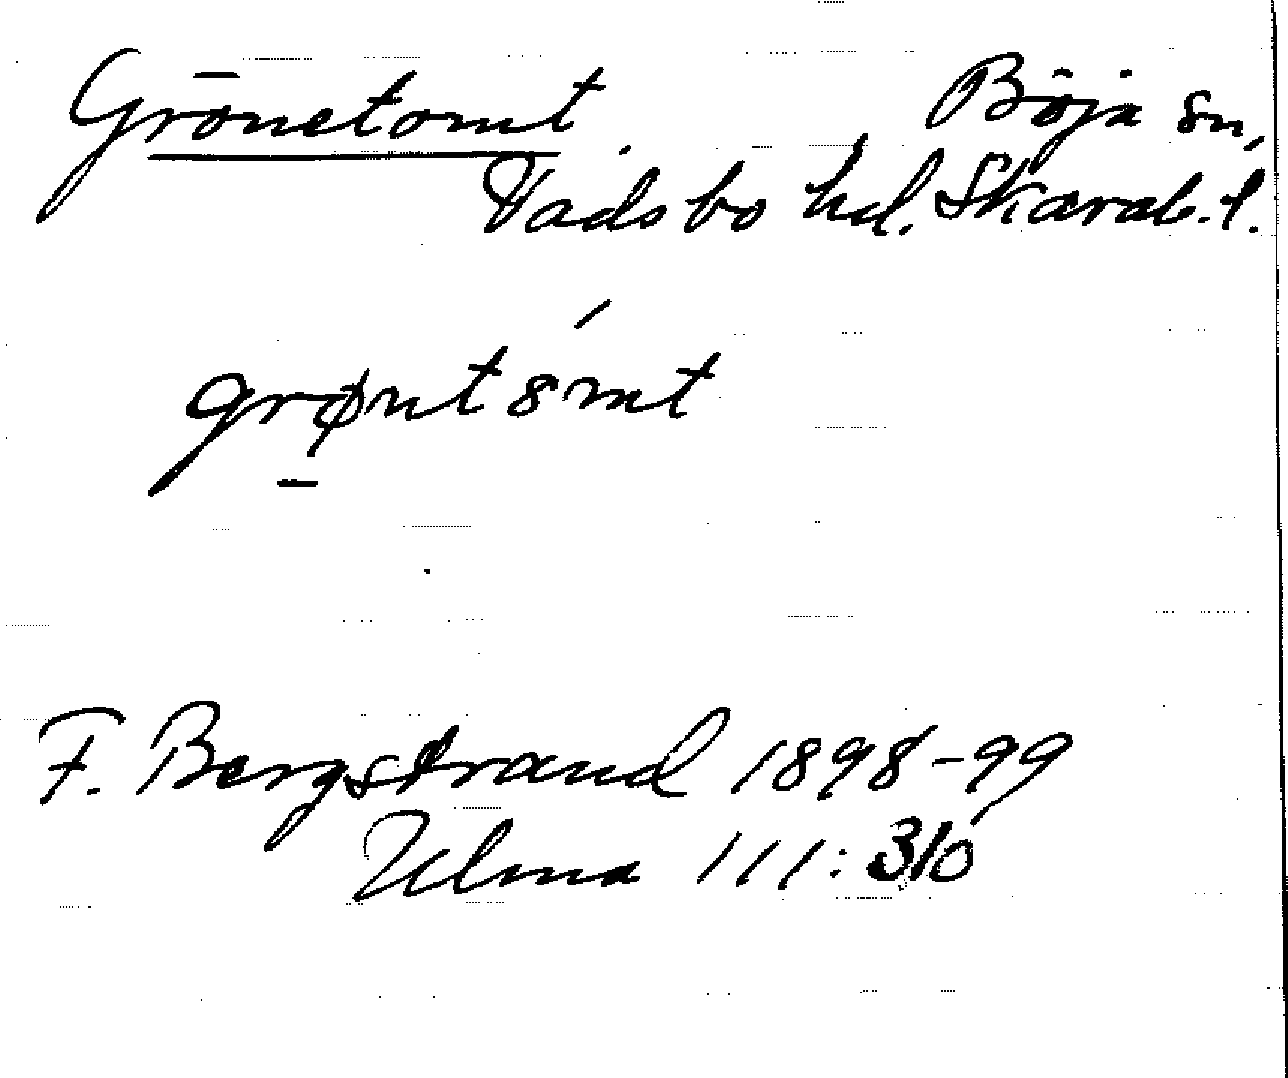 Grönetomt. Böja sn,
Vadsbo hd. Skarab. l.
grøntomt
F. Bergstrand 1898-99
Ulma 111:310